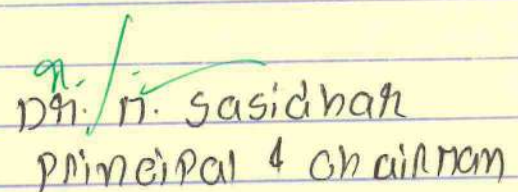 Dr. n. sasidhar
principal & chairman